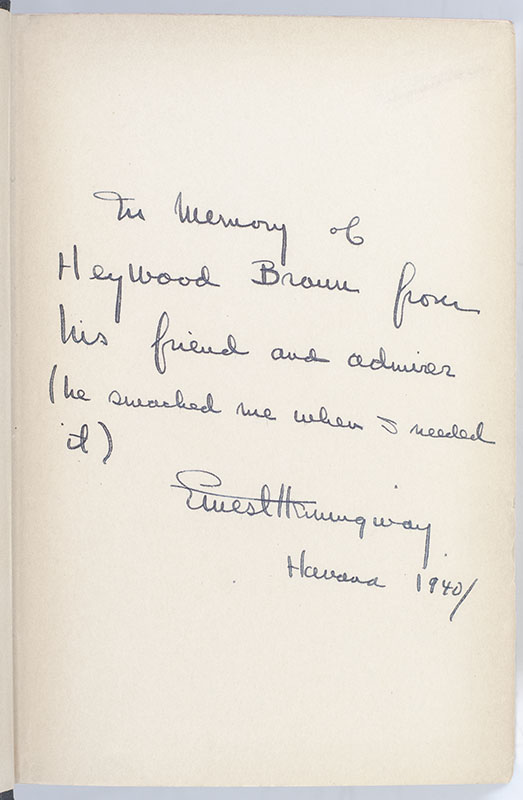 In Memory of
Heywood Broun from
his friend and admirer
(he smacked me when I needed
it)
Ernest Hemingway
Havana 1940/